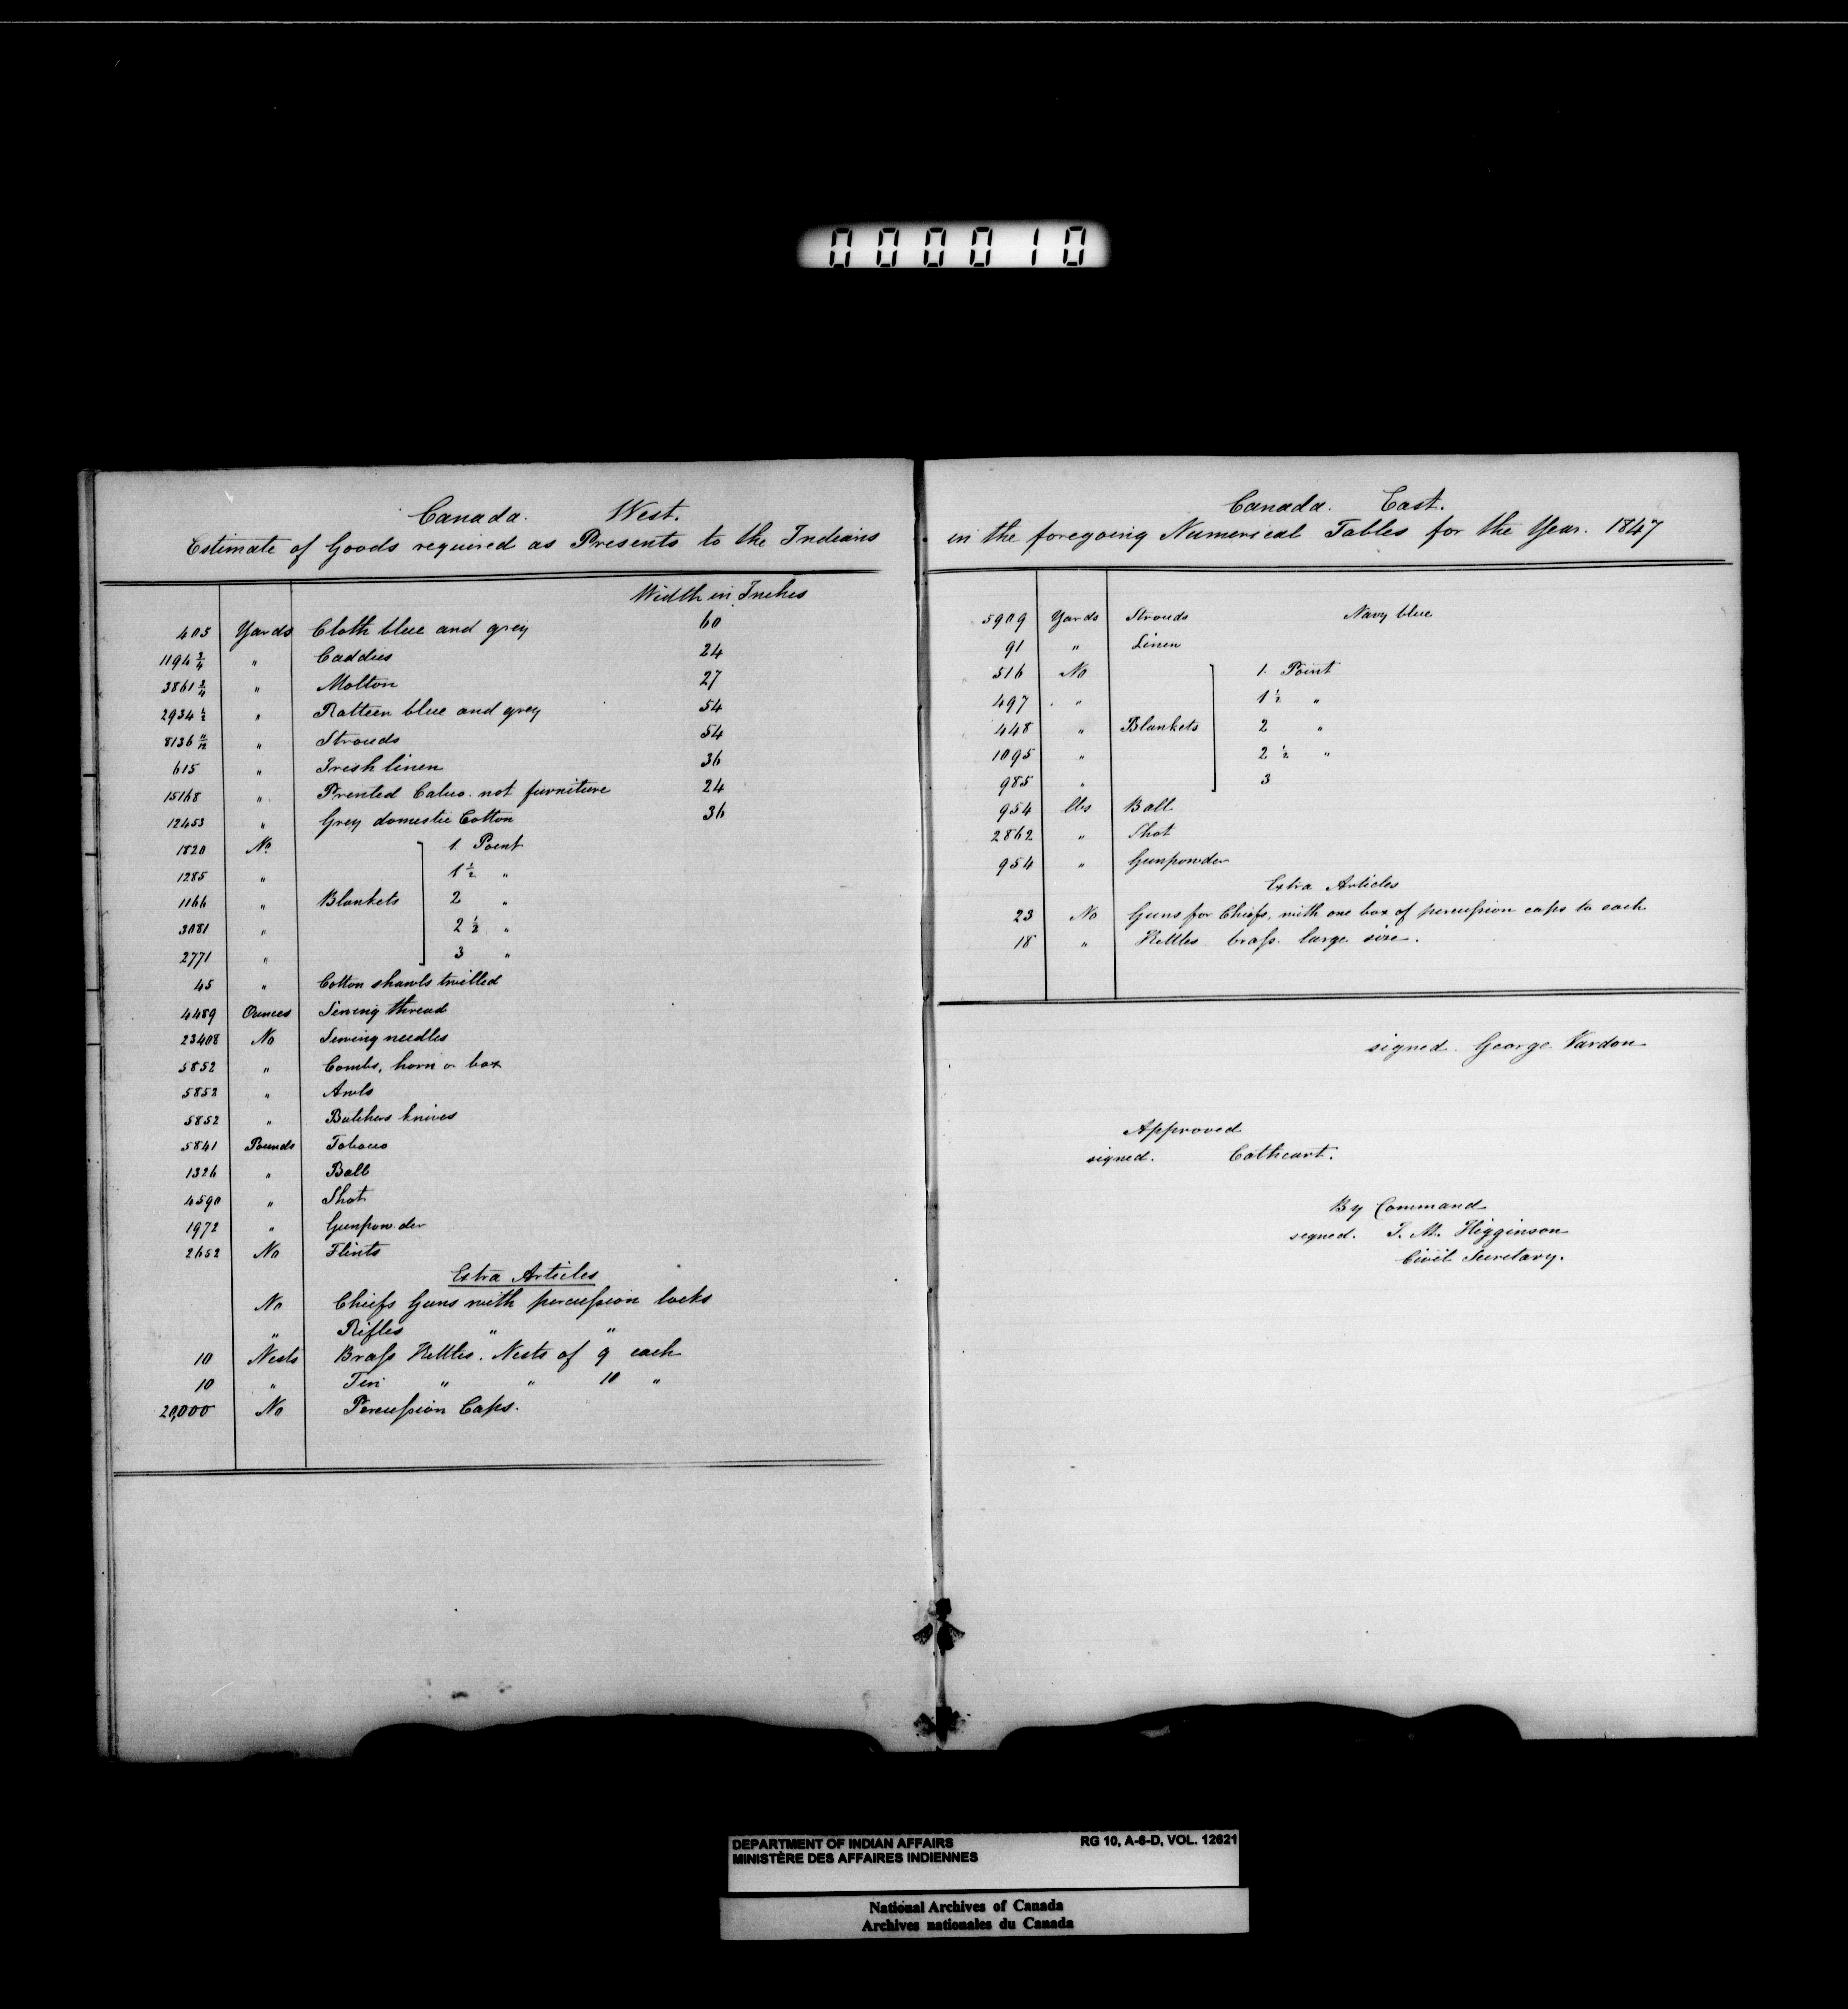 000010
Canada. West.
Estimate of Goods required as Presents to the Indians
Width in Inches
405 Yards Cloth blue and grey 60
1194 3/4 " Caddies 24
3861 3/4 " Molton 27
2934 1/2 " Ratteen blue and grey 54
8136 11/12 " Strouds 54
615 " Irish linen 36
15168 " Prented Calico. not furniture 24
12453 " Grey domestic Cotton 36
1820 No. 1. Point
1285 " 1 1/2 "
1166 " Blankets 2 "
3081 " 2 1/2 "
2771 " 3 "
45 " Cotton shawls twilled
4489 Ounces Sewing thread
23408 No Sewing needles
5852 " Combs, horn or box
5852 " Awls
5852 " Butchers knives
5841 Pounds Tobacco
1326 " Ball
4590 " Shot
1972 " Gunpowder
2652 No Flints
Extra Articles
No Chiefs Guns with percussion locks
" Rifles " "
10 Nests Brass Kettles. Nests of 9 each
10 " Tin " " 10 "
20,000 No Percussion Caps.
Canada. East.
in the foregoing Numerical Tables for the Year. 1847
5909 Yards Strouds Navy blue
91 " Linen
516 No 1. Point
497 " 1 1/2 "
448 " Blankets 2 "
1095 " 2 1/2 "
985 " 3
954 lbs Ball
2862 " Shot
954 " Gunpowder
Extra Articles
23 No Guns for Chiefs, with one box of percussion caps to each
18 " Kettles brass large size.
signed. George Vardon
Approved
signed. Cathcart.
By Command
signed. J. M. Higginson
Civil Secretary.
DEPARTMENT OF INDIAN AFFAIRS RG 10, A-6-D, VOL. 12621
MINISTÈRE DES AFFAIRES INDIENNES
National Archives of Canada
Archives nationales du Canada